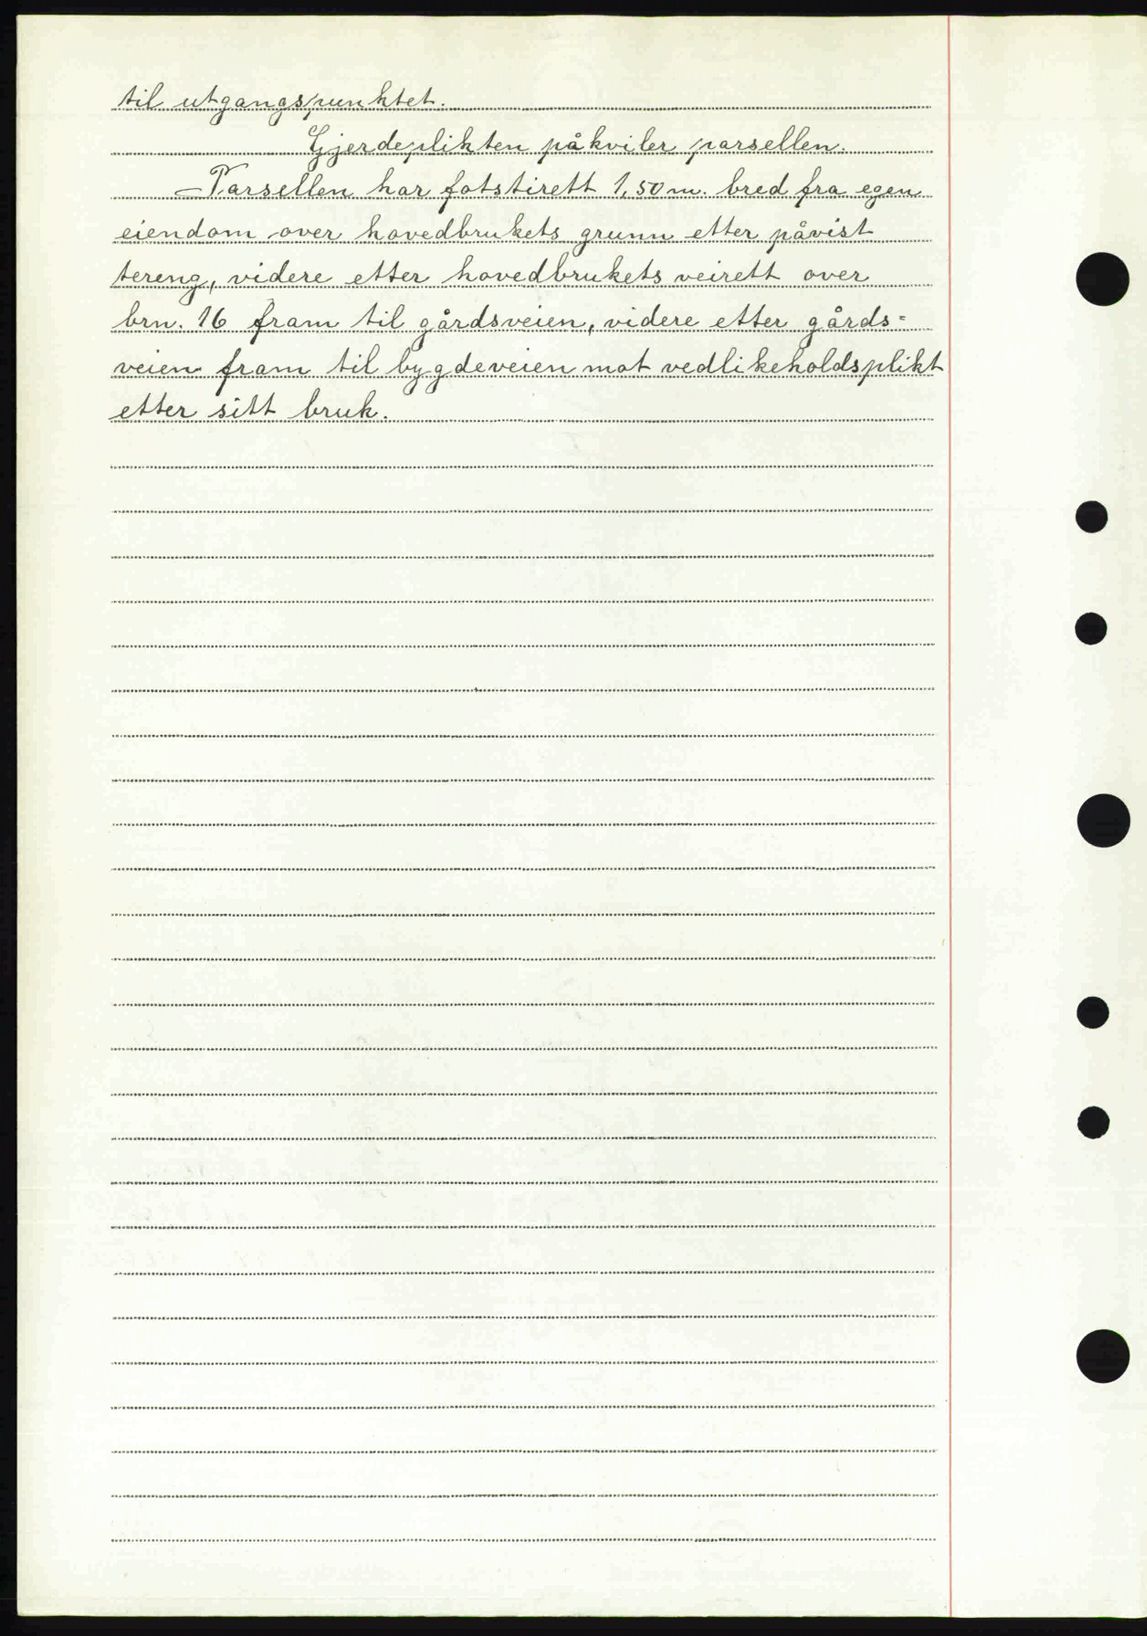 til utgangspunktet.
Gjerdeplikten påkviler parsellen.
Parsellen har fotstirett 1,50 m. bred fra egen
eiendom over hovedbrukets grunn etter påvist
tereng, videre etter hovedbrukets veirett over
brn. 16 fram til gårdsveien, videre etter gårds=
veien fram til bygdeveien mot vedlikeholdsplikt
etter sitt bruk.